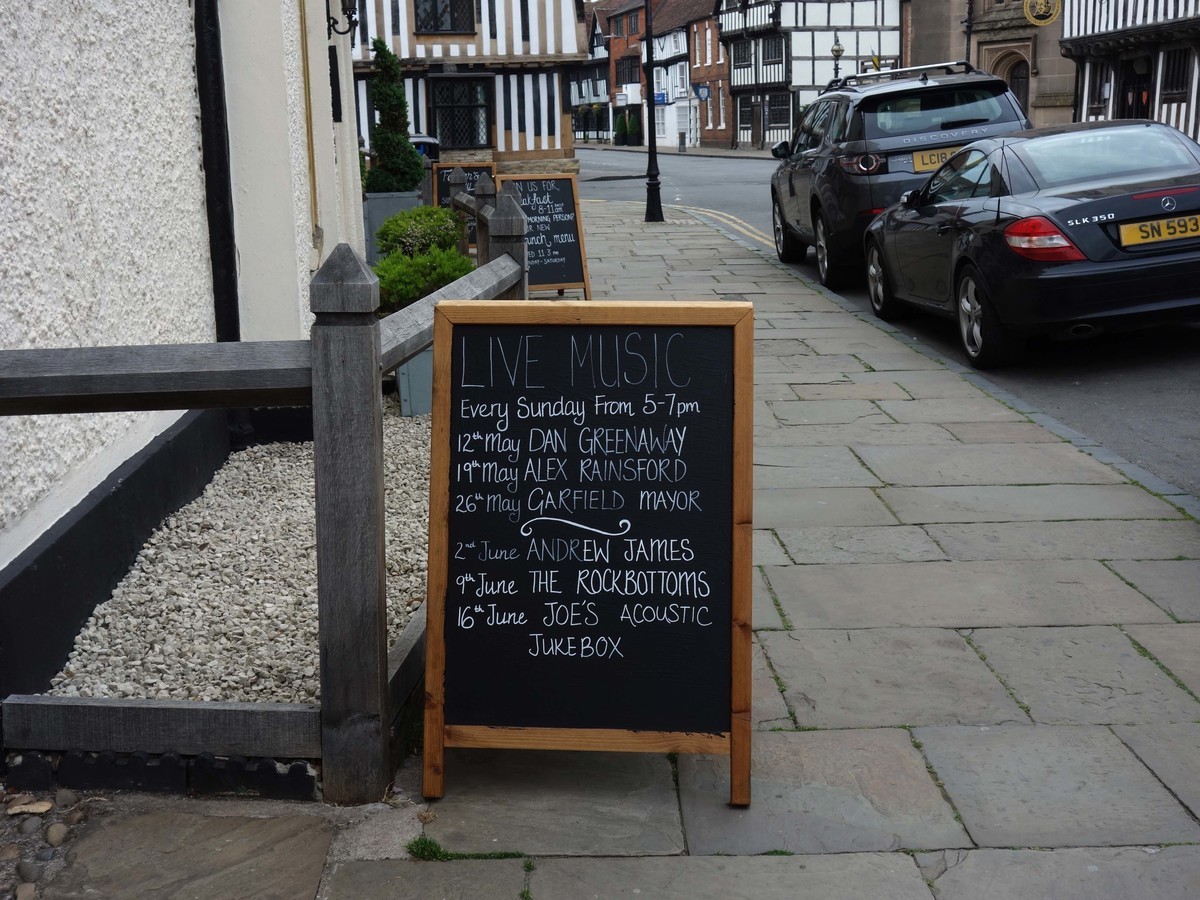 LIVE MUSIC
Every Sunday From 5-7pm
12th May DAN GREENAWAY
19th May ALEX RAINSFORD
26th May GARFIELD MAYOR
2nd June ANDREW JAMES
9th June THE ROCKBOTTOMS
16th June JOE'S ACOUSTIC
JUKEBOX
US FOR
8-11am
MORNING PERSON?
NEW
menu
DISCOVERY
LC18
SLK 350
SN 593